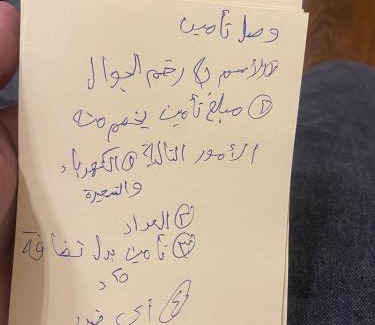 وصل تأمين
① الاسم و رقم الجوال
② مبلغ تأمين يخصم منه
الأمور التالية ① الكهرباء
② العداد
③ تأمين بدل نضافة
④ أي